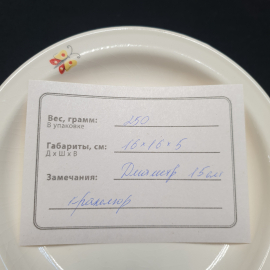 Вес, грамм: 250
В упаковке
Габариты, см: 16×16×5
Д х Ш х В
Замечания: Диаметр 15 см